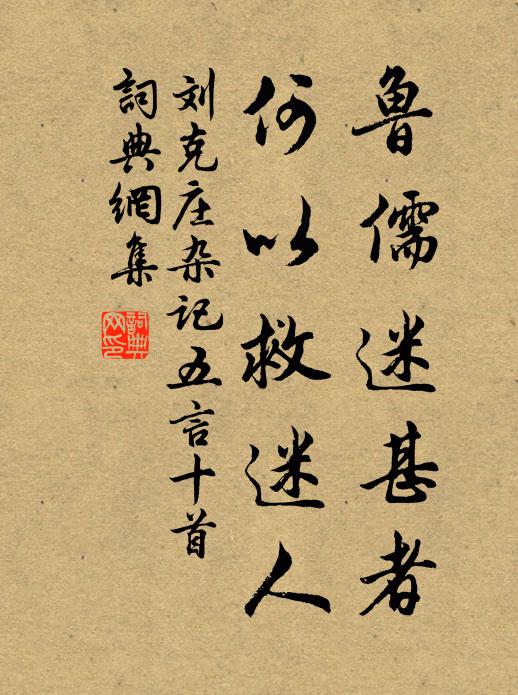 鲁儒迷甚者
何以救迷人
刘克庄杂记五言十首
詞典網集
詞典网印